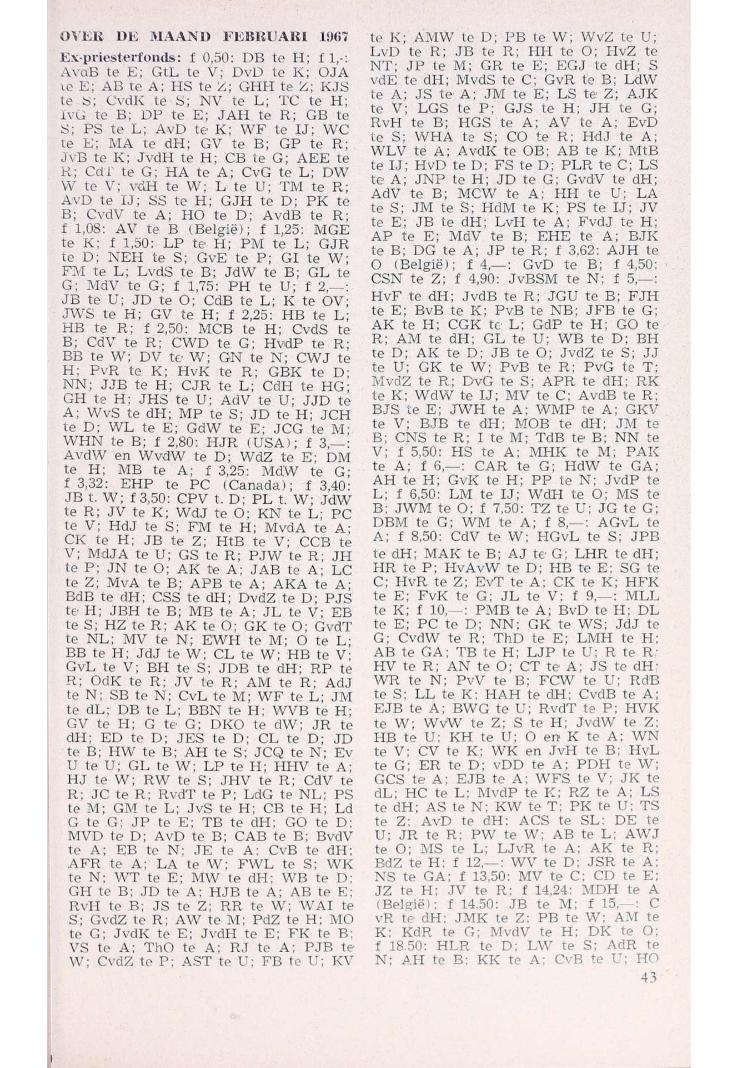 OVER DE MAAND FEBRUARI 1967
Ex-priesterfonds: f 0,50: DB te H; f 1,-:
AvaB te E; GtL te V; DvD te K; OJA
te E; AB te A; HS te Z; GHH te Z; KJS
te S; CvdK te S; NV te L; TC te H;
IvG te B; DP te E; JAH te R; GB te
S; PS te L; AvD te K; WF te IJ; WC
te E; MA te dH; GV te B; GP te R;
JvB te K; JvdH te H; CB te G; AEE te
R; CdT te G; HA te A; CvG te L; DW
W te V; vdH te W; L te U; TM te R;
AvD te IJ; SS te H; GJH te D; PK te
B; CvdV te A; HO te D; AvdB te R;
f 1,08: AV te B (België); f 1,25: MGE
te K; f 1,50: LP te H; PM te L; GJR
te D; NEH te S; GvE te P; GI te W;
FM te L; LvdS te B; JdW te B; GL te
G; MdV te G; f 1,75: PH te U; f 2,—:
JB te U; JD te O; CdB te L; K te OV;
JWS te H; GV te H; f 2,25: HB te L;
HB te R; f 2,50: MCB te H; CvdS te
B; CdV te R; CWD te G; HvdP te R;
BB te W; DV te W; GN te N; CWJ te
H; PvR te K; HvK te R; GBK te D;
NN; JJB te H; CJR te L; CdH te HG;
GH te H; JHS te U; AdV te U; JJD te
A; WvS te dH; MP te S; JD te H; JCH
te D; WL te E; GdW te E; JCG te M;
WHN te B; f 2,80: HJR (USA); f 3,—:
AvdW en WvdW te D; WdZ te E; DM
te H; MB te A; f 3,25: MdW te G;
f 3,32: EHP te PC (Canada); f 3,40:
JB t. W; f 3,50: CPV t. D; PL t. W; JdW
te R; JV te K; WdJ te O; KN te L; PC
te V; HdJ te S; FM te H; MvdA te A;
CK te H; JB te Z; HtB te V; CCB te
V; MdJA te U; GS te R; PJW te R; JH
te P; JN te O; AK te A; JAB te A; LC
te Z; MvA te B; APB te A; AKA te A;
BdB te dH; CSS te dH; DvdZ te D; PJS
te H; JBH te B; MB te A; JL te V; EB
te S; HZ te R; AK te O; GK te O; GvdT
te NL; MV te N; EWH te M; O te L;
BB te H; JdJ te W; CL te W; HB te V;
GvL te V; BH te S; JDB te dH; RP te
R; OdK te R; JV te R; AM te R; AdJ
te N; SB te N; CvL te M; WF te L; JM
te dL; DB te L; BBN te H; WVB te H;
GV te H; G te G; DKO te dW; JR te
dH; ED te D; JES te D; CL te D; JD
te B; HW te B; AH te S; JCQ te N; Ev
U te U; GL te W; LP te H; HHV te A;
HJ te W; RW te S; JHV te R; CdV te
R; JC te R; RvdT te P; LdG te NL; PS
te M; GM te L; JvS te H; CB te H; Ld
G te G; JP te E; TB te dH; GO te D;
MVD te D; AvD te B; CAB te B; BvdV
te A; EB te N; JE te A; CvB te dH;
AFR te A; LA te W; FWL te S; WK
te N; WT te E; MW te dH; WB te D;
GH te B; JD te A; HJB te A; AB te E;
RvH te B; JS te Z; RR te W; WAI te
S; GvdZ te R; AW te M; PdZ te H; MO
te G; JvdK te E; JvdH te E; FK te B;
VS te A; ThO te A; RJ te A; PJB te
W; CvdZ te P; AST te U; FB te U; KV
te K; AMW te D; PB te W; WvZ te U;
LvD te R; JB te R; HH te O; HvZ te
NT; JP te M; GR te E; EGJ te dH; S
vdE te dH; MvdS te C; GvR te B; LdW
te A; JS te A; JM te E; LS te Z; AJK
te V; LGS te P; GJS te H; JH te G;
RvH te B; HGS te A; AV te A; EvD
te S; WHA te S; CO te R; HdJ te A;
WLV te A; AvdK te OB; AB te K; MtB
te IJ; HvD te D; FS te D; PLR te C; LS
te A; JNP te H; JD te G; GvdV te dH;
AdV te B; MCW te A; HH te U; LA
te S; JM te S; HdM te K; PS te IJ; JV
te E; JB te dH; LvH te A; FvdJ te H;
AP te E; MdV te B; EHE te A; BJK
te B; DG te A; JP te R; f 3,62: AJH te
O (België); f 4,—: GvD te B; f 4,50:
CSN te Z; f 4,90: JvBSM te N; f 5,—:
HvF te dH; JvdB te R; JGU te B; FJH
te E; BvB te K; PvB te NB; JFB te G;
AK te H; CGK te L; GdP te H; GO te
R; AM te dH; GL te U; WB te D; BH
te D; AK te D; JB te O; JvdZ te S; JJ
te U; GK te W; PvB te R; PvG te T;
MvdZ te R; DvG te S; APR te dH; RK
te K; WdW te IJ; MV te C; AvdB te R;
BJS te E; JWH te A; WMP te A; GKV
te V; BJB te dH; MOB te dH; JM te
B; CNS te R; I te M; TdB te B; NN te
V; f 5,50: HS te A; MHK te M; PAK
te A; f 6,—: CAR te G; HdW te GA;
AH te H; GvK te H; PP te N; JvdP te
L; f 6,50: LM te IJ; WdH te O; MS te
B; JWM te O; f 7,50: TZ te U; JG te G;
DBM te G; WM te A; f 8,—: AGvL te
A; f 8,50: CdV te W; HGvL te S; JPB
te dH; MAK te B; AJ te G; LHR te dH;
HR te P; HvAvW te D; HB te E; SG te
C; HvR te Z; EvT te A; CK te K; HFK
te E; FvK te G; JL te V; f 9,—: MLL
te K; f 10,—: PMB te A; BvD te H; DL
te E; PC te D; NN; GK te WS; JdJ te
G; CvdW te R; ThD te E; LMH te H;
AB te GA; TB te H; LJP te U; R te R;
HV te R; AN te O; CT te A; JS te dH;
WR te N; PvV te B; FCW te U; RdB
te S; LL te K; HAH te dH; CvdB te A;
EJB te A; BWG te U; RvdT te P; HVK
te W; WvW te Z; S te H; JvdW te Z;
HB te U; KH te U; O en K te A; WN
te V; CV te K; WK en JvH te B; HvL
te G; ER te D; vDD te A; PDH te W;
GCS te A; EJB te A; WFS te V; JK te
dL; HC te L; MvdP te K; RZ te A; LS
te dH; AS te N; KW te T; PK te U; TS
te Z; AvD te dH; ACS te SL; DE te
U; JR te R; PW te W; AB te L; AWJ
te O; MS te L; LJvR te A; AK te R;
BdZ te H; f 12,—: WV te D; JSR te A;
NS te GA; f 13,50: MV te C; CD te E;
JZ te H; JV te R; f 14,24: MDH te A
(België); f 14.50: JB te M; f 15,—: C
vR te dH; JMK te Z; PB te W; AM te
K; KdR te G; MvdV te H; DK te O;
f 18.50: HLR te D; LW te S; AdR te
N; AH te B; KK te A; CvB te U; HO
43